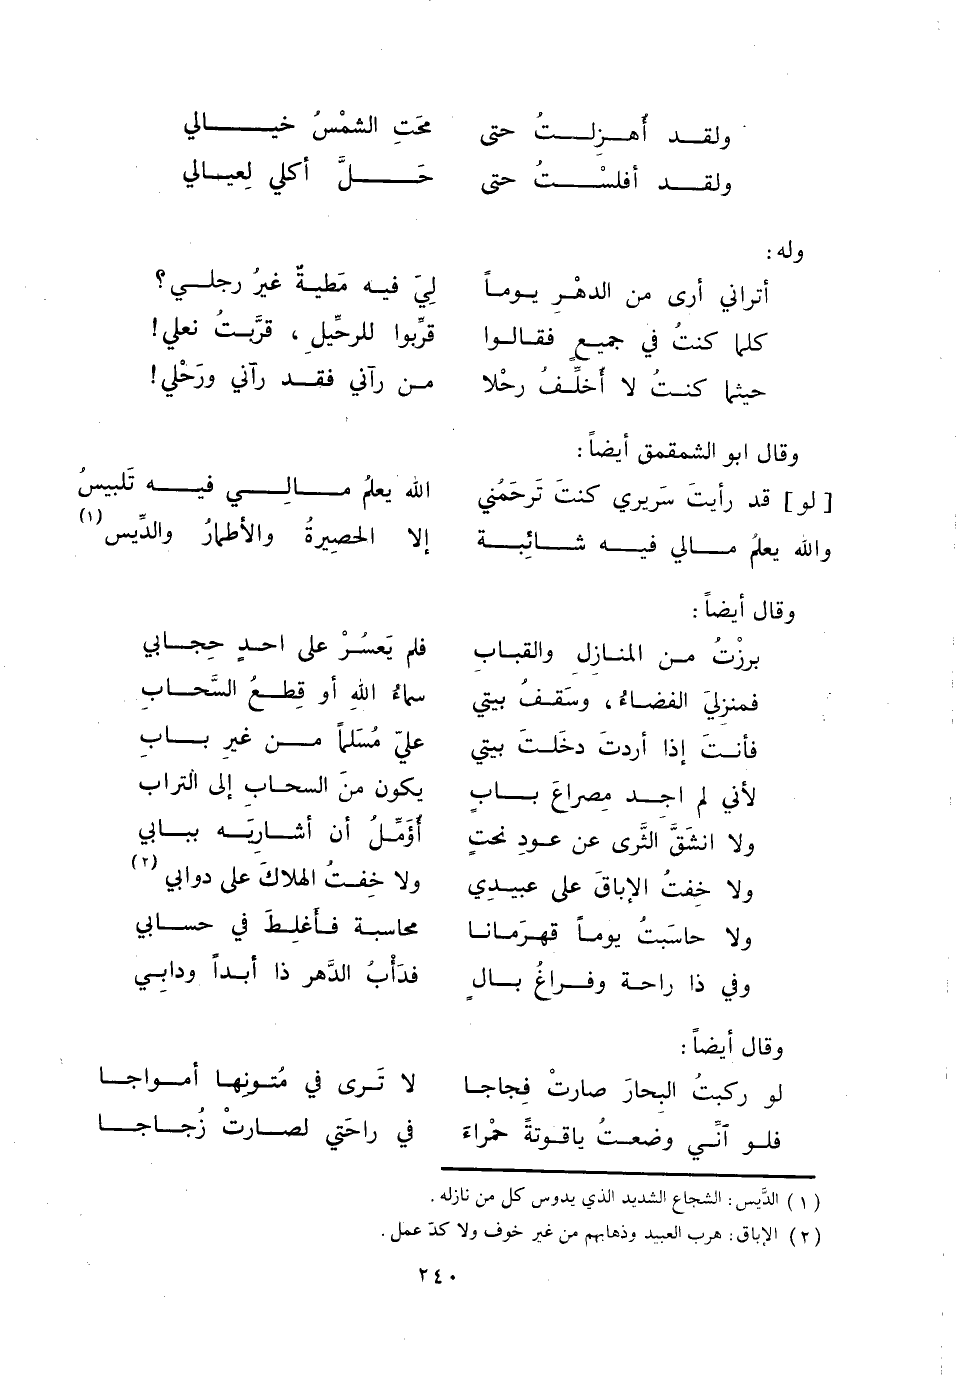 ولقد أُهزلتُ حتى    محَتِ الشمْسُ خيالي
ولقد أفلسْتُ حتى    حَلَّ أكلي لعيالي
وله :
أتراني أرى من الدهْرِ يوماً    لِيَ فيه مَطيةٌ غيرُ رجلي؟
كلما كنتُ في جميعٍ فقالوا    قرِّبوا للرحِّيلِ ، قرَّبتُ نعلي!
حيثما كنتُ لا أُخلِّفُ رحْلا    من رآني فقد رآني ورَحْلي!
وقال ابو الشمقمق أيضاً :
[ لو ] قد رأيتَ سَريري كنتَ تَرحَمُني    الله يعلمُ مالي فيه تَلبيسُ
والله يعلمُ مالي فيه شائِبة    إلا الحصيرةُ والأطمارُ والدِّيس (١)
وقال أيضاً :
برزْتُ من المنازلِ والقبابِ    فلم يَعسُرْ على احدٍ حِجابي
فمنزليَ الفضاءُ ، وسَقفُ بيتي    سماءُ اللهِ أو قطعُ السَّحابِ
فأنتَ إذا أردتَ دخَلتَ بيتي    عليّ مُسَلماً من غيرِ بابِ
لأني لم اجد مِصراعَ بابٍ    يكون منَ السحابِ إلى الترابِ
ولا انشَقَّ الثَّرى عن عودِ نحتٍ    أُؤَمِّلُ أن أشارِيَه ببابي
ولا خفتُ الإباقَ على عبيدي    ولا خِفتُ الهلاكَ على دوابي (٢)
ولا حاسَبتُ يوماً قهرَمانا    محاسبة فأغلِطَ في حسابي
وفي ذا راحة وفراغُ بالٍ    فدَأْبُ الدَّهر ذا أبداً ودابي
وقال أيضاً :
لو ركبتُ البحارَ صارتْ فِجاجا    لا تَرى في مُتونِها أمواجا
فلو آنَّي وضعتُ ياقوتةً حمْراءَ    في راحَتي لصارتْ زُجاجا
(١) الدَّيس : الشجاع الشديد الذي يدوس كل من نازله .
(٢) الإباق : هرب العبيد وذهابهم من غير خوف ولا كدّ عمل .
٢٤٠